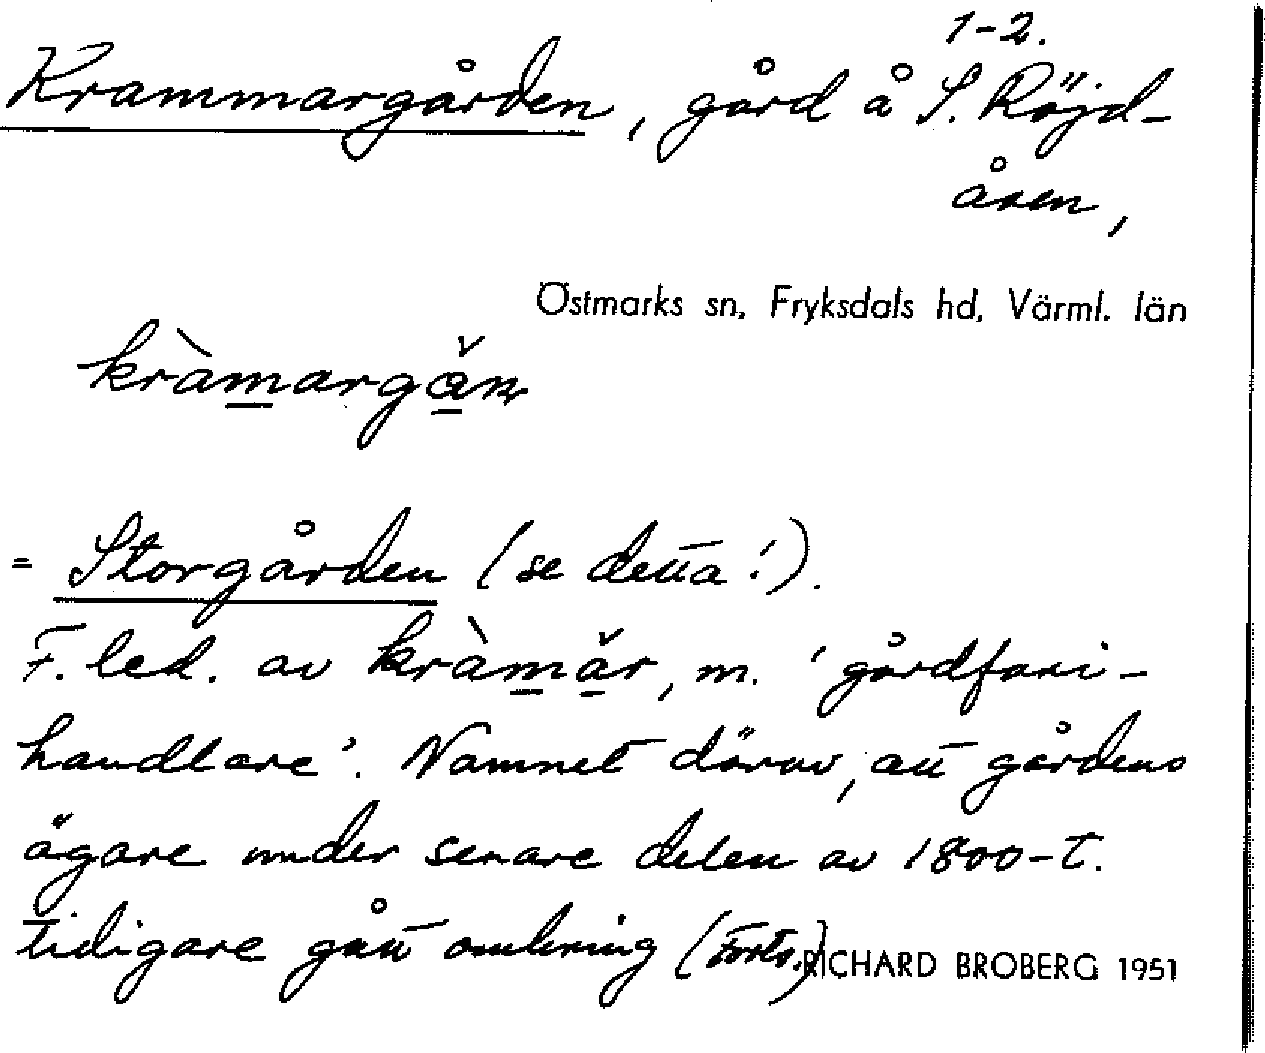 1-2.
Krammargården, gård å S. Röjd-
åsen,
Östmarks sn, Fryksdals hd, Värml. län
kràmargǎṇ
= Storgården (se detta!).
F. led. av kràmǎr, m. 'gårdfari-
handlare'. Namnet därav, att gårdens
ägare under senare delen av 1800-t.
tidigare gått omkring (Forts.)
RICHARD BROBERG 1951